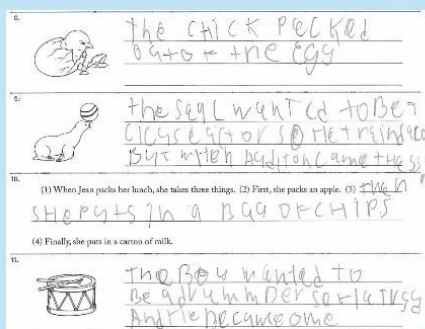 8.
the CHICK PecKed
outof the egg
9.
the seal wanted toBe
But when
10.
(1) When Jean packs her lunch, she takes three things. (2) First, she packs an apple. (3) then
SHe puts in a Bag OF CHIPS
(4) Finally, she puts in a carton of milk.
11.
The Boy wanted to
Be a drummer
And He Became ome